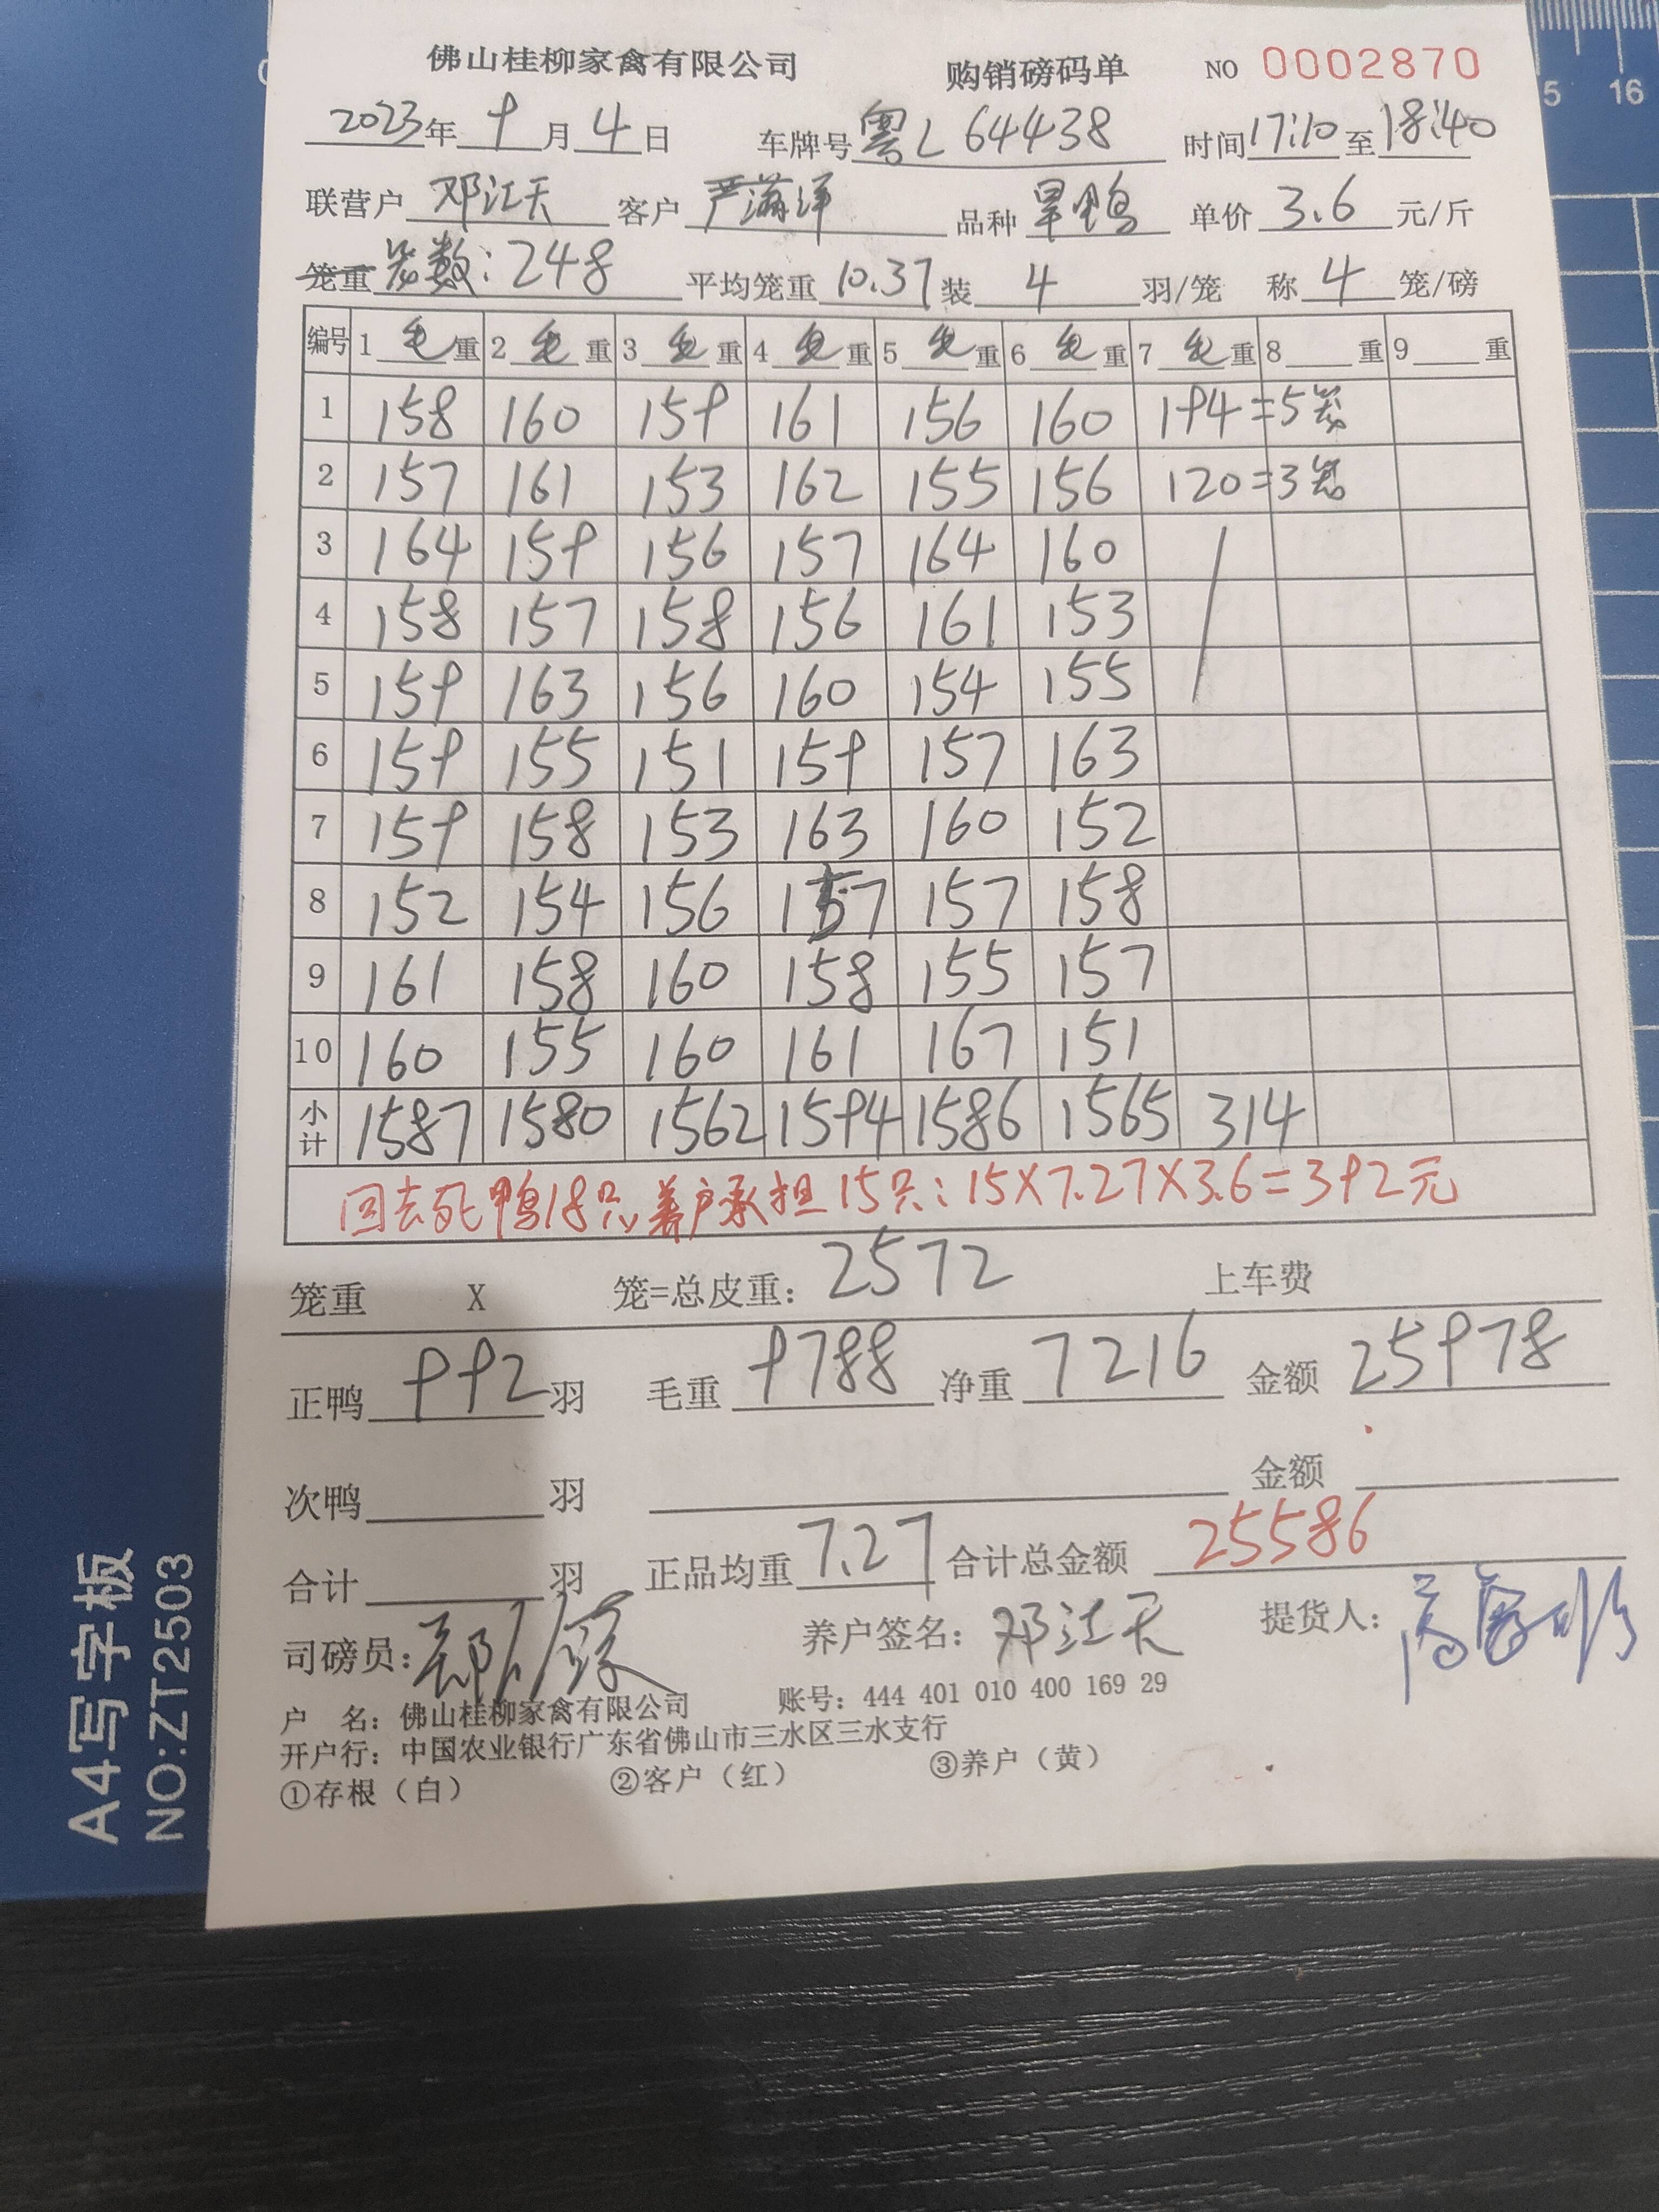 佛山桂柳家禽有限公司 购销磅码单 NO 0002870
2023年 9月 4日 车牌号 粤L 64438 时间 17:10 至 18:40
联营户 邓江天 客户 严满洋 品种 旱鸭 单价 3.6 元/斤
笼重 笼数: 248 平均笼重 10.37 装 4 羽/笼 称 4 笼/磅
编号 1 毛重 2 毛重 3 毛重 4 毛重 5 毛重 6 毛重 7 毛重 8 重 9 重
1 158 160 159 161 156 160 194=5笼
2 157 161 153 162 155 156 120=3笼
3 164 159 156 157 164 160
4 158 157 158 156 161 153
5 159 163 156 160 154 155
6 159 155 151 159 157 163
7 159 158 153 163 160 152
8 152 154 156 157 157 158
9 161 158 160 158 155 157
10 160 155 160 161 167 151
小计 1587 1580 1562 1594 1586 1565 314
回去死鸭18只 养户承担15只: 15X7.27X3.6=392元
笼重 X 笼=总皮重: 2572 上车费
正鸭 992 羽 毛重 9788 净重 7216 金额 25978
次鸭 羽 金额
合计 羽 正品均重 7.27 合计总金额 25586
司磅员: 养户签名: 邓江天 提货人:
户 名: 佛山桂柳家禽有限公司 账号: 444 401 010 400 169 29
开户行: 中国农业银行广东省佛山市三水区三水支行
①存根（白） ②客户（红） ③养户（黄）
A4写字板
NO:ZT2503
5 16